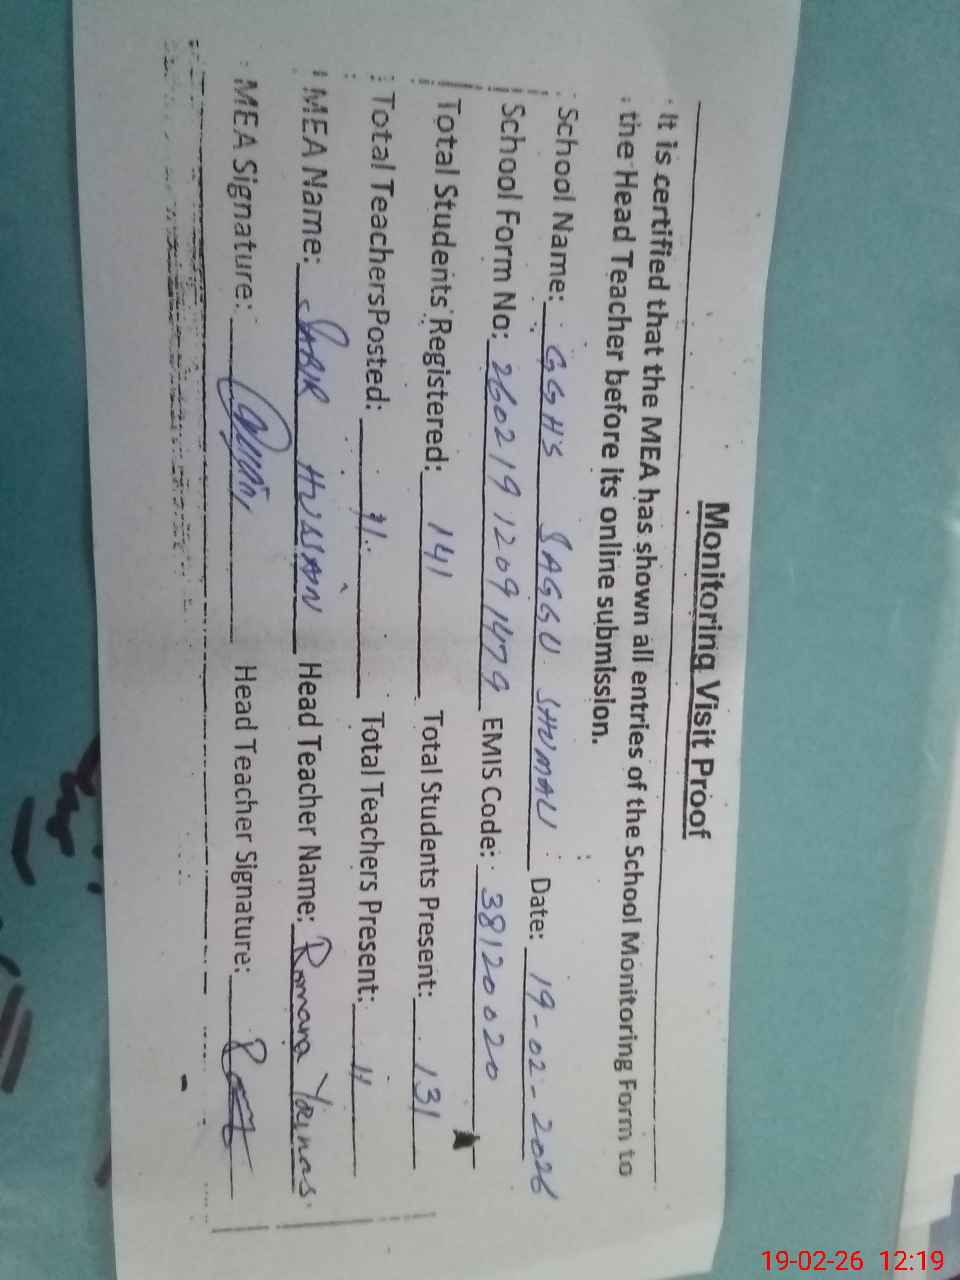 Monitoring Visit Proof
It is certified that the MEA has shown all entries of the School Monitoring Form to
the Head Teacher before its online submission.
School Name: GGHS SAGGU SHUMALI Date: 19-02-2026
School Form No: 26021912091479 EMIS Code: 38120020
Total Students Registered: 141 Total Students Present: 131
Total Teachers Posted: 11 Total Teachers Present: 11
MEA Name: SABIR HUSSAN Head Teacher Name: Romana Younas.
MEA Signature: Head Teacher Signature:
19-02-26 12:19